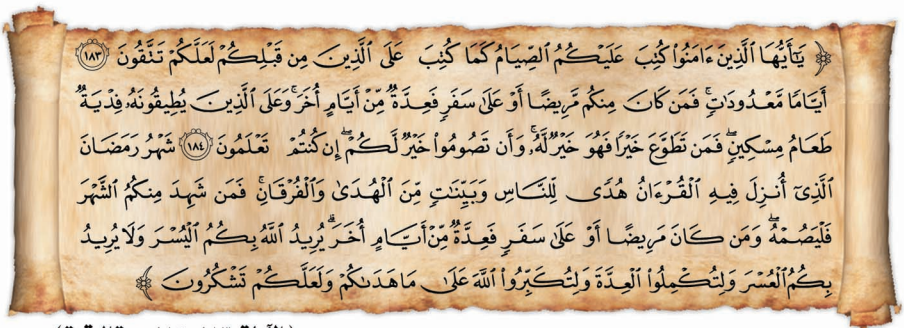 ﴿ يَٰٓأَيُّهَا ٱلَّذِينَ ءَامَنُوا۟ كُتِبَ عَلَيْكُمُ ٱلصِّيَامُ كَمَا كُتِبَ عَلَى ٱلَّذِينَ مِن قَبْلِكُمْ لَعَلَّكُمْ تَتَّقُونَ ١٨٣
أَيَّامًا مَّعْدُودَٰتٍ ۚ فَمَن كَانَ مِنكُم مَّرِيضًا أَوْ عَلَىٰ سَفَرٍ فَعِدَّةٌ مِّنْ أَيَّامٍ أُخَرَ ۚ وَعَلَى ٱلَّذِينَ يُطِيقُونَهُۥ فِدْيَةٌ
طَعَامُ مِسْكِينٍ ۖ فَمَن تَطَوَّعَ خَيْرًا فَهُوَ خَيْرٌ لَّهُۥ ۚ وَأَن تَصُومُوا۟ خَيْرٌ لَّكُمْ ۖ إِن كُنتُمْ تَعْلَمُونَ ١٨٤ شَهْرُ رَمَضَانَ
ٱلَّذِىٓ أُنزِلَ فِيهِ ٱلْقُرْءَانُ هُدًى لِّلنَّاسِ وَبَيِّنَٰتٍ مِّنَ ٱلْهُدَىٰ وَٱلْفُرْقَانِ ۚ فَمَن شَهِدَ مِنكُمُ ٱلشَّهْرَ
فَلْيَصُمْهُ ۖ وَمَن كَانَ مَرِيضًا أَوْ عَلَىٰ سَفَرٍ فَعِدَّةٌ مِّنْ أَيَّامٍ أُخَرَ ۗ يُرِيدُ ٱللَّهُ بِكُمُ ٱلْيُسْرَ وَلَا يُرِيدُ
بِكُمُ ٱلْعُسْرَ وَلِتُكْمِلُوا۟ ٱلْعِدَّةَ وَلِتُكَبِّرُوا۟ ٱللَّهَ عَلَىٰ مَا هَدَىٰكُمْ وَلَعَلَّكُمْ تَشْكُرُونَ ﴾